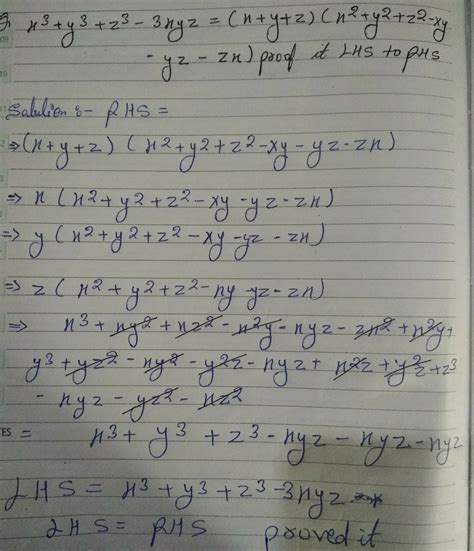 x³+y³+z³-3xyz = (x+y+z) (x²+y²+z²-xy
-yz-zx) proof it LHS to RHS
Solution :- RHS =
⇒(x+y+z) (x²+y²+z²-xy-yz-zx)
⇒ x (x²+y²+z²-xy-yz-zx)
⇒ y (x²+y²+z²-xy-yz-zx)
⇒ z (x²+y²+z²-xy-yz-zx)
⇒ x³+xy²+xz²-x²y-xyz-zx²+x²y+
y³+yz²-xy²-y²z-xyz+x²z+y²z+z³
-xyz-yz²-xz²
= x³+y³+z³-xyz-xyz-xyz
LHS = x³+y³+z³-3xyz
LHS = RHS proved it